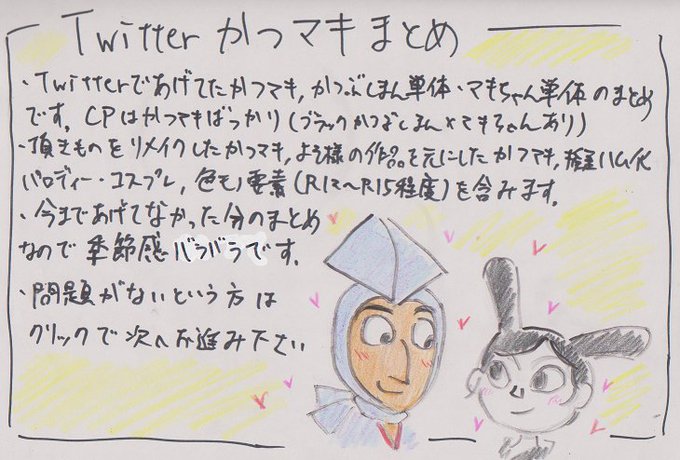 Twitterかつマキまとめ
・Twitterであげてたかつマキ,かつぶしまん単体・マキちゃん単体のまとめ
です。CPはかつマキばっかり(ブラックかつぶしまん×マキちゃんあり)
・頂きものをリメイクしたかつマキ,よう様の作品を元にしたかつマキ,擬人化
パロディー・コスプレ,色モノ要素(R12〜R15程度)を含みます。
・今まであげてなかった分のまとめ
なので季節感バラバラです。
・問題がないという方は
クリックで次へお進み下さい